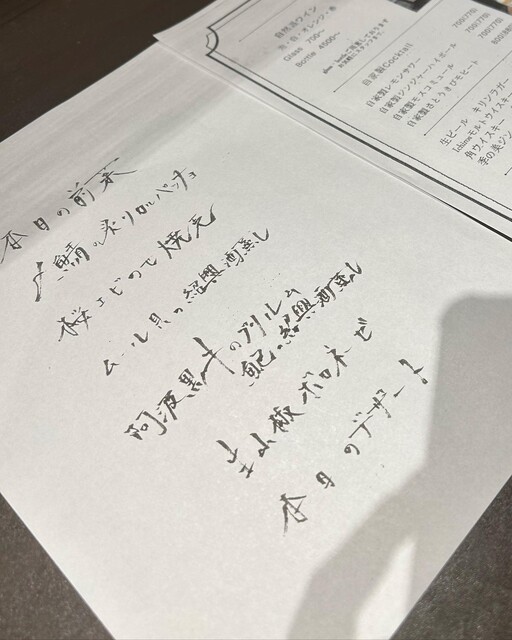 本日の前菜
〆鯖の炙りカルパッチョ
桜エビの 焼売
ムール貝の紹興酒蒸し
阿波黒牛のブリルム
鮑の紹興酒蒸し
ボロネーゼ
本日のデザート
自然派ワイン
泡・白・オレンジ・赤
Glass 700〜
Bottle 4500〜
自家製Cocktail
自家製レモンサワー
自家製ジンジャーハイボール
自家製モスコミュール
自家製さとうきびモヒート
700(770)
700(770)
700(770)
生ビール キリンラガー
Ichiroモルトウイスキー
角ウイスキー
季の美ジン